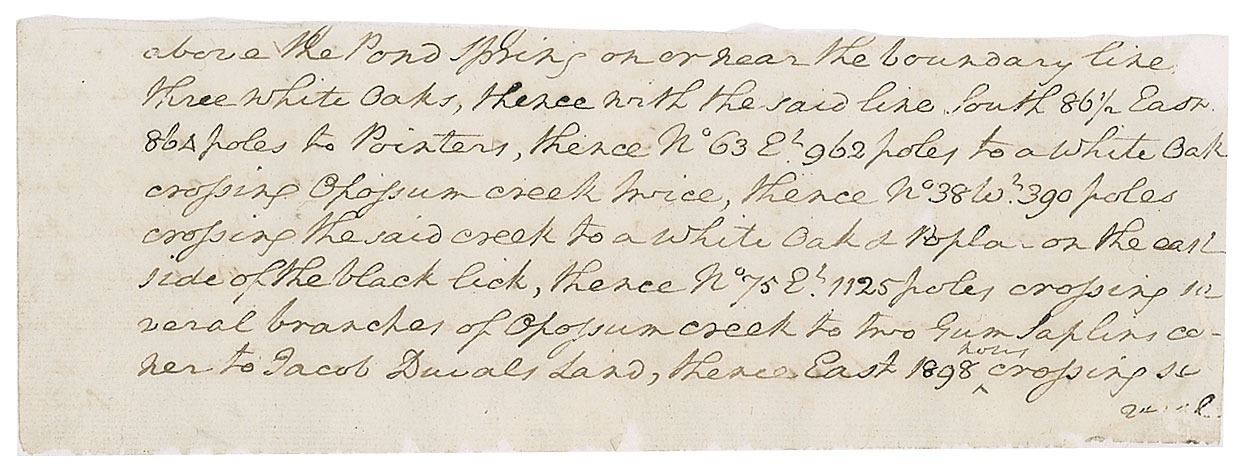 above the Pond Spring on or near the boundary line
three white Oaks, thence with the said line South 86½ East
864 poles to Pointers, thence No 63 Et. 962 poles to a white Oak
crossing Opossum creek twice, thence No 38 Wt. 390 poles
crossing the said creek to a white Oak & Poplar on the east
side of the black lick, thence No 75 Et. 1125 poles crossing se
veral branches of Opossum creek to two Gum Saplins co-
ner to Jacob Duvals Land, thence East 1898 ^ crossing se